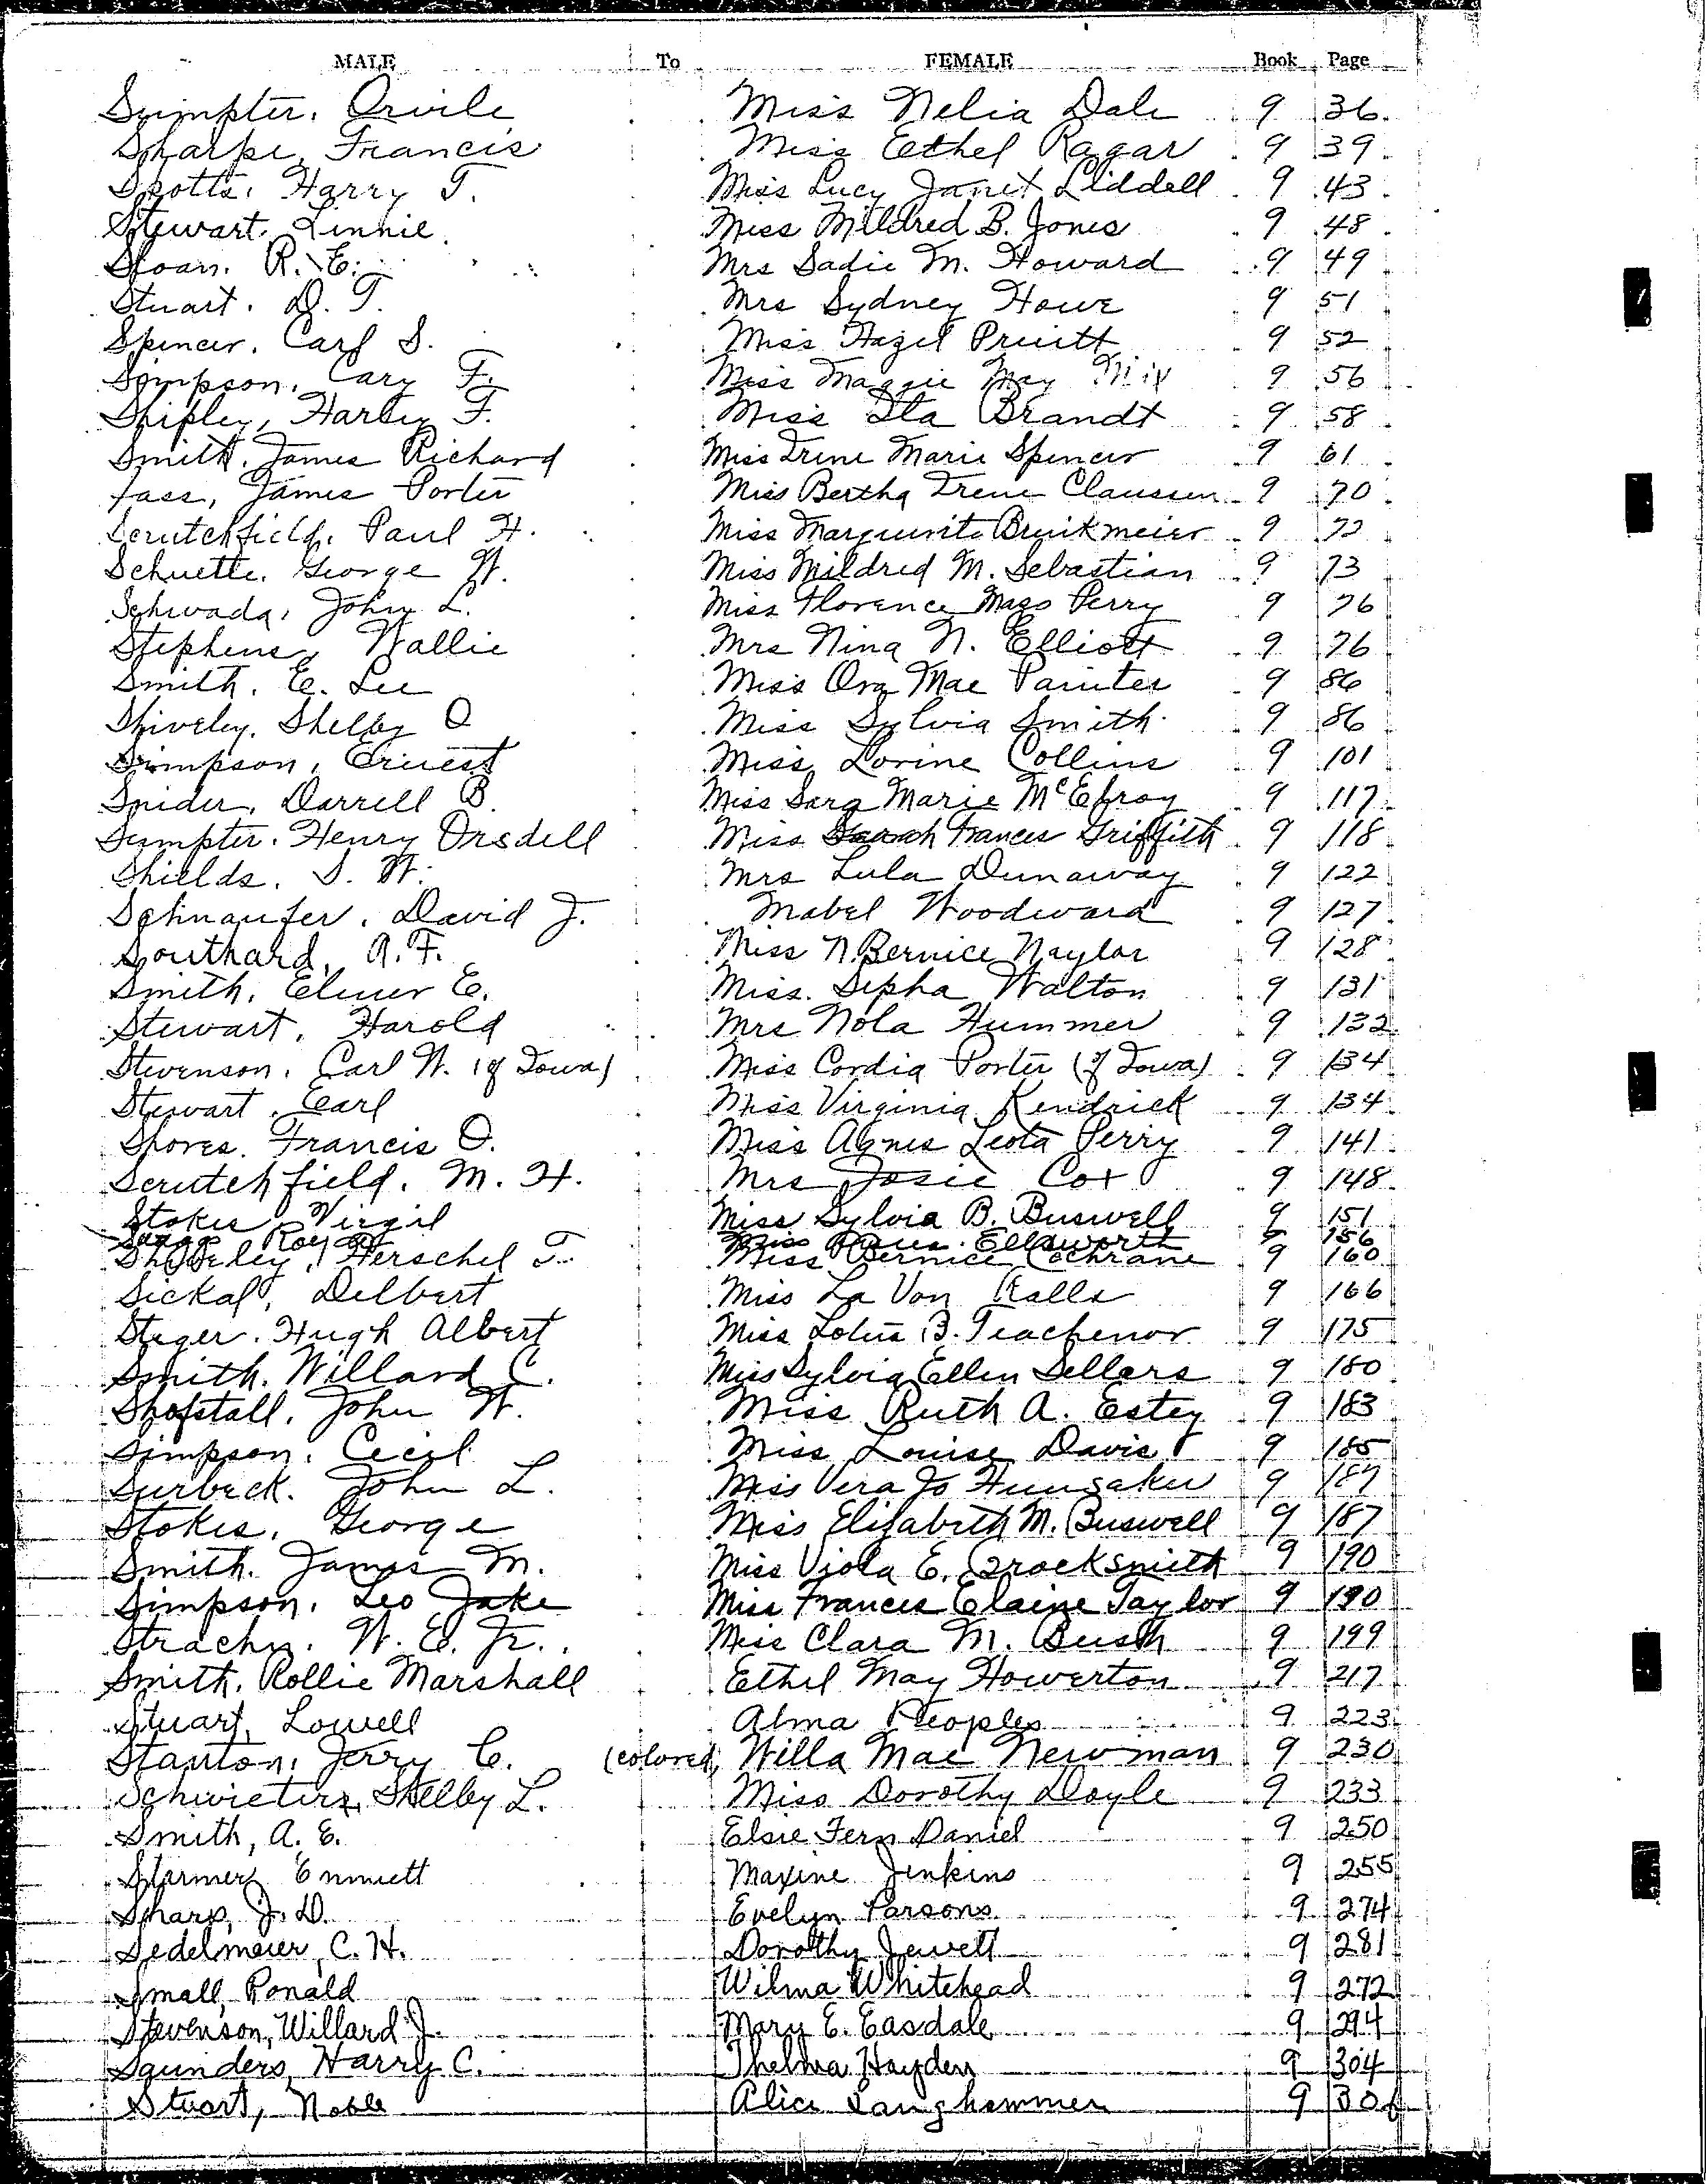 MALE To FEMALE Book Page
Sumpter, Orvile Miss Nelia Dale 9 36
Sharpe, Francis Miss Ethel Ragar 9 39
Spotts, Harry T. Miss Lucy Janet Liddell 9 43
Stewart, Linnie Miss Mildred B. Jones 9 48
Sloan, R. E. Mrs Sadie M. Howard 9 49
Stuart, D. T. Mrs Sydney Howe 9 51
Spencer, Carl S. Miss Hazel Pruitt 9 52
Simpson, Cary F. Miss Maggie May Nix 9 56
Shipley, Harley F. Miss Ita Brandt 9 58
Smith, James Richard Miss Irene Marie Spencer 9 61
James Porter Miss Bertha Irene Claussen 9 70
Scrutchfield, Paul H. Miss Marguerite 9 72
Schuette, George W. Miss Mildred M. Sebastian 9 73
Schwada, John L. Miss Florence Perry 9 76
Stephens, Wallie Mrs Nina N. Elliott 9 76
Smith, E. Lee Miss Ora Mae Painter 9 86
Shiveley, Shelby O Miss Sylvia Smith 9 86
Simpson, Ernest Miss Lorine Collins 9 101
Snider, Darrell B. Miss Sara Marie McElroy 9 117
Sumpter, Henry Orsdell Miss Sarah Frances Griffith 9 118
Shields, S. W. Mrs Lula Dunaway 9 122
Schnaufer, David J. Mabel Woodward 9 127
Southard, A. F. Miss N. Bernice Naylor 9 128
Smith, Elmer E. Miss. Sepha Walton 9 131
Stewart, Harold Mrs Nola Hummer 9 132
Stevenson, Carl W. (of Iowa) Miss Cordia Porter (of Iowa) 9 134
Stewart, Earl Miss Virginia Kendrick 9 134
Shores, Francis O. Miss Agnes Leota Perry 9 141
Scrutchfield, M. H. Mrs Josie Cox 9 148
Stokes, Virgil Miss Sylvia B. Buswell 9 151
Roy Miss Ellsworth 156
Herschel T. Miss Bernice Cochrane 9 160
Sickal, Delbert Miss La Von Ralls 9 166
Steger, Hugh Albert Miss Lotus B. Teachenor 9 175
Smith, Willard C. Miss Sylvia Ellen Sellars 9 180
Shofstall, John W. Miss Ruth A. Estey 9 183
Simpson, Cecil Miss Louise Davis 9 185
Surbeck, John L. Miss Vera Jo Hunsaker 9 187
Stokes, George Miss Elizabeth M. Buswell 9 187
Smith, James M. Miss Viola E. Brocksmith 9 190
Simpson, Leo Jake Miss Frances Elaine Taylor 9 190
Strachn, W. E. Jr. Miss Clara M. Bush 9 199
Smith, Rollie Marshall Ethel May Howerton 9 217
Stuart, Lowell Alma Peoples 9 223
Stanton, Jerry C. (colored) Willa Mae Newman 9 230
Schwieterz, Shelby L. Miss Dorothy Doyle 9 233
Smith, A. E. Elsie Fern Daniel 9 250
Starmer, Emmett Maxine Jenkins 9 255
Sharp, J. D. Evelyn Parsons 9 274
Sedelmeier, C. H. Dorothy Jewett 9 281
Small, Ronald Wilma Whitehead 9 272
Stevenson, Willard J. Mary E. Easdale 9 294
Saunders, Harry C. Thelma Hayden 9 304
Stuart, Noble Alice Langhammer 9